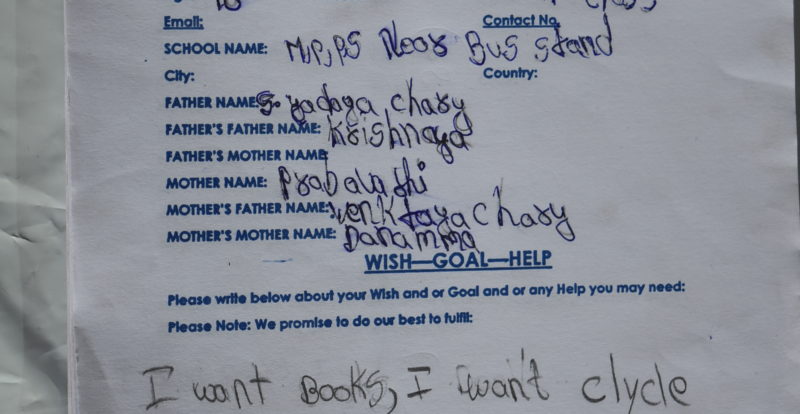 Email: Contact No.
SCHOOL NAME: M.P.P.S Near Bus stand
City: Country:
FATHER NAME: S. yadaya chary
FATHER'S FATHER NAME: Krishnaya
FATHER'S MOTHER NAME
MOTHER NAME: Prabalathi
MOTHER'S FATHER NAME: venktaya chary
MOTHER'S MOTHER NAME: Danamma
WISH—GOAL—HELP
Please write below about your Wish and or Goal and or any Help you may need:
Please Note: We promise to do our best to fulfil:
I want Books, I want clycle